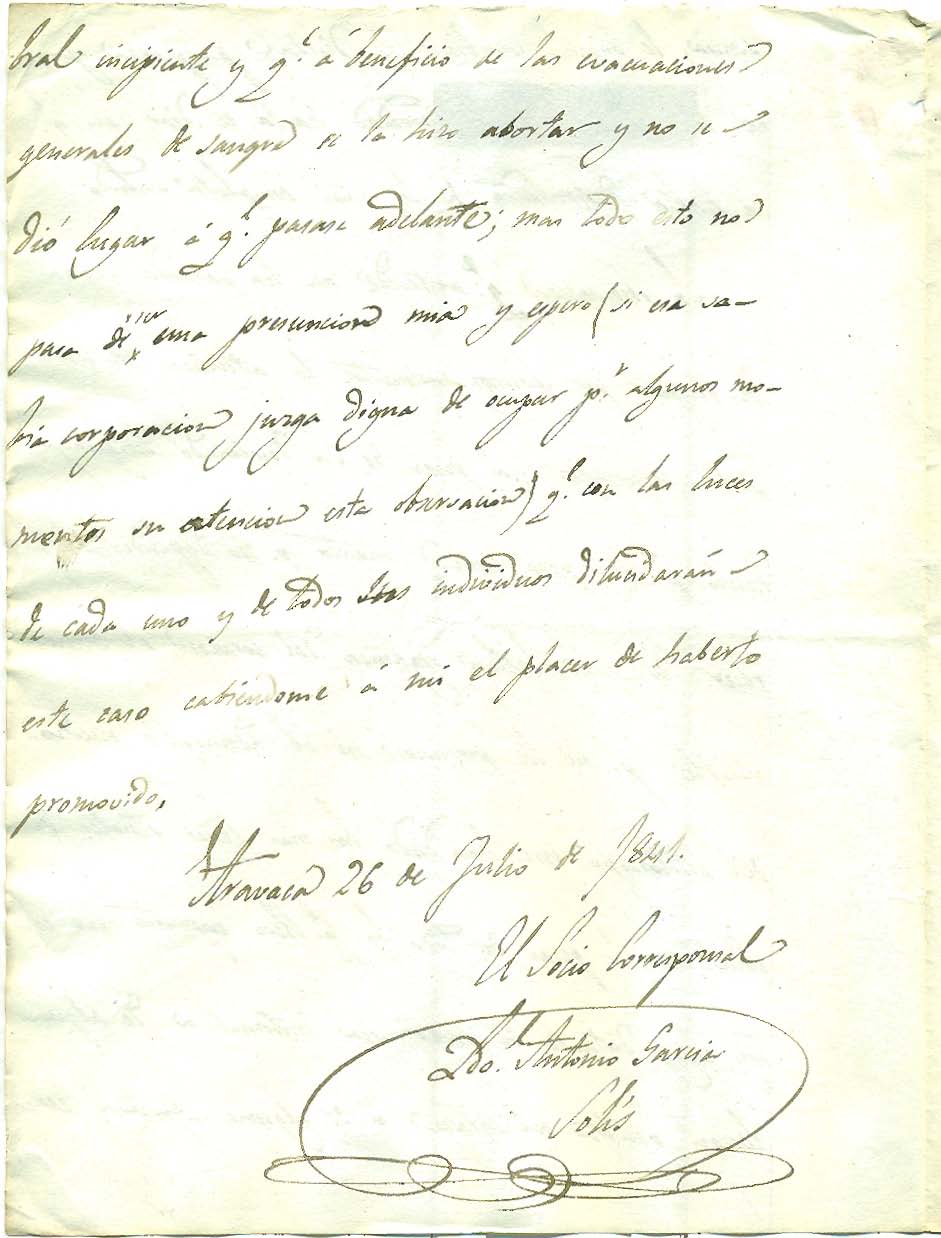 bral incipiente y q.e á beneficio de las evacuaciones
generales de sangre se la hizo abortar y no se
dió lugar á q.e pasase adelante; mas todo esto no
pasa de ser una presuncion mia y espero (si esa sa-
bia corporacion juzga digna de ocupar p.r algunos mo-
mentos su atencion esta observacion) q.e con las luces
de cada uno y de todos sus individuos dilucidarán
este caso cabiendome á mi el placer de haberlo
promovido.
Aravaca 26 de Julio de 1841.
El Socio Corresponsal
Ldo. Antonio Garcia
Solís